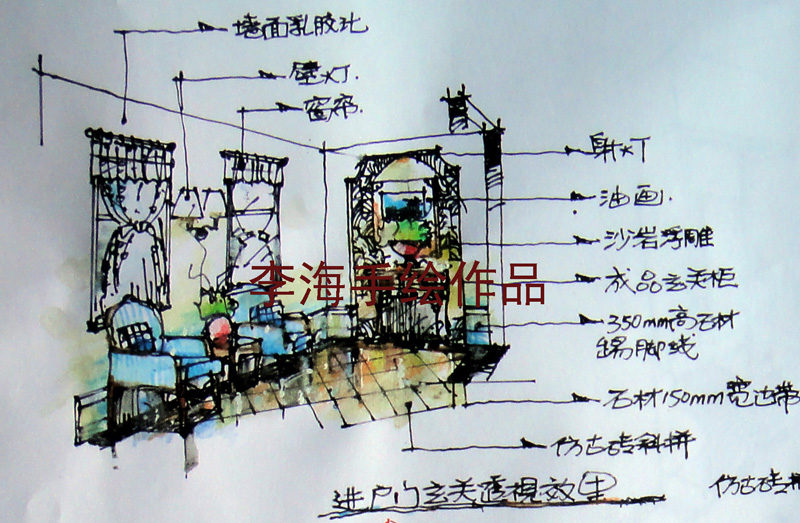 墙面乳胶比
壁灯.
窗帘.
射灯
油画.
沙岩浮雕
成品玄关柜
350mm高石材
踢脚线
石材150mm宽边带
仿古砖斜拼
进户门玄关透視效果
仿古砖拼
李海手绘作品